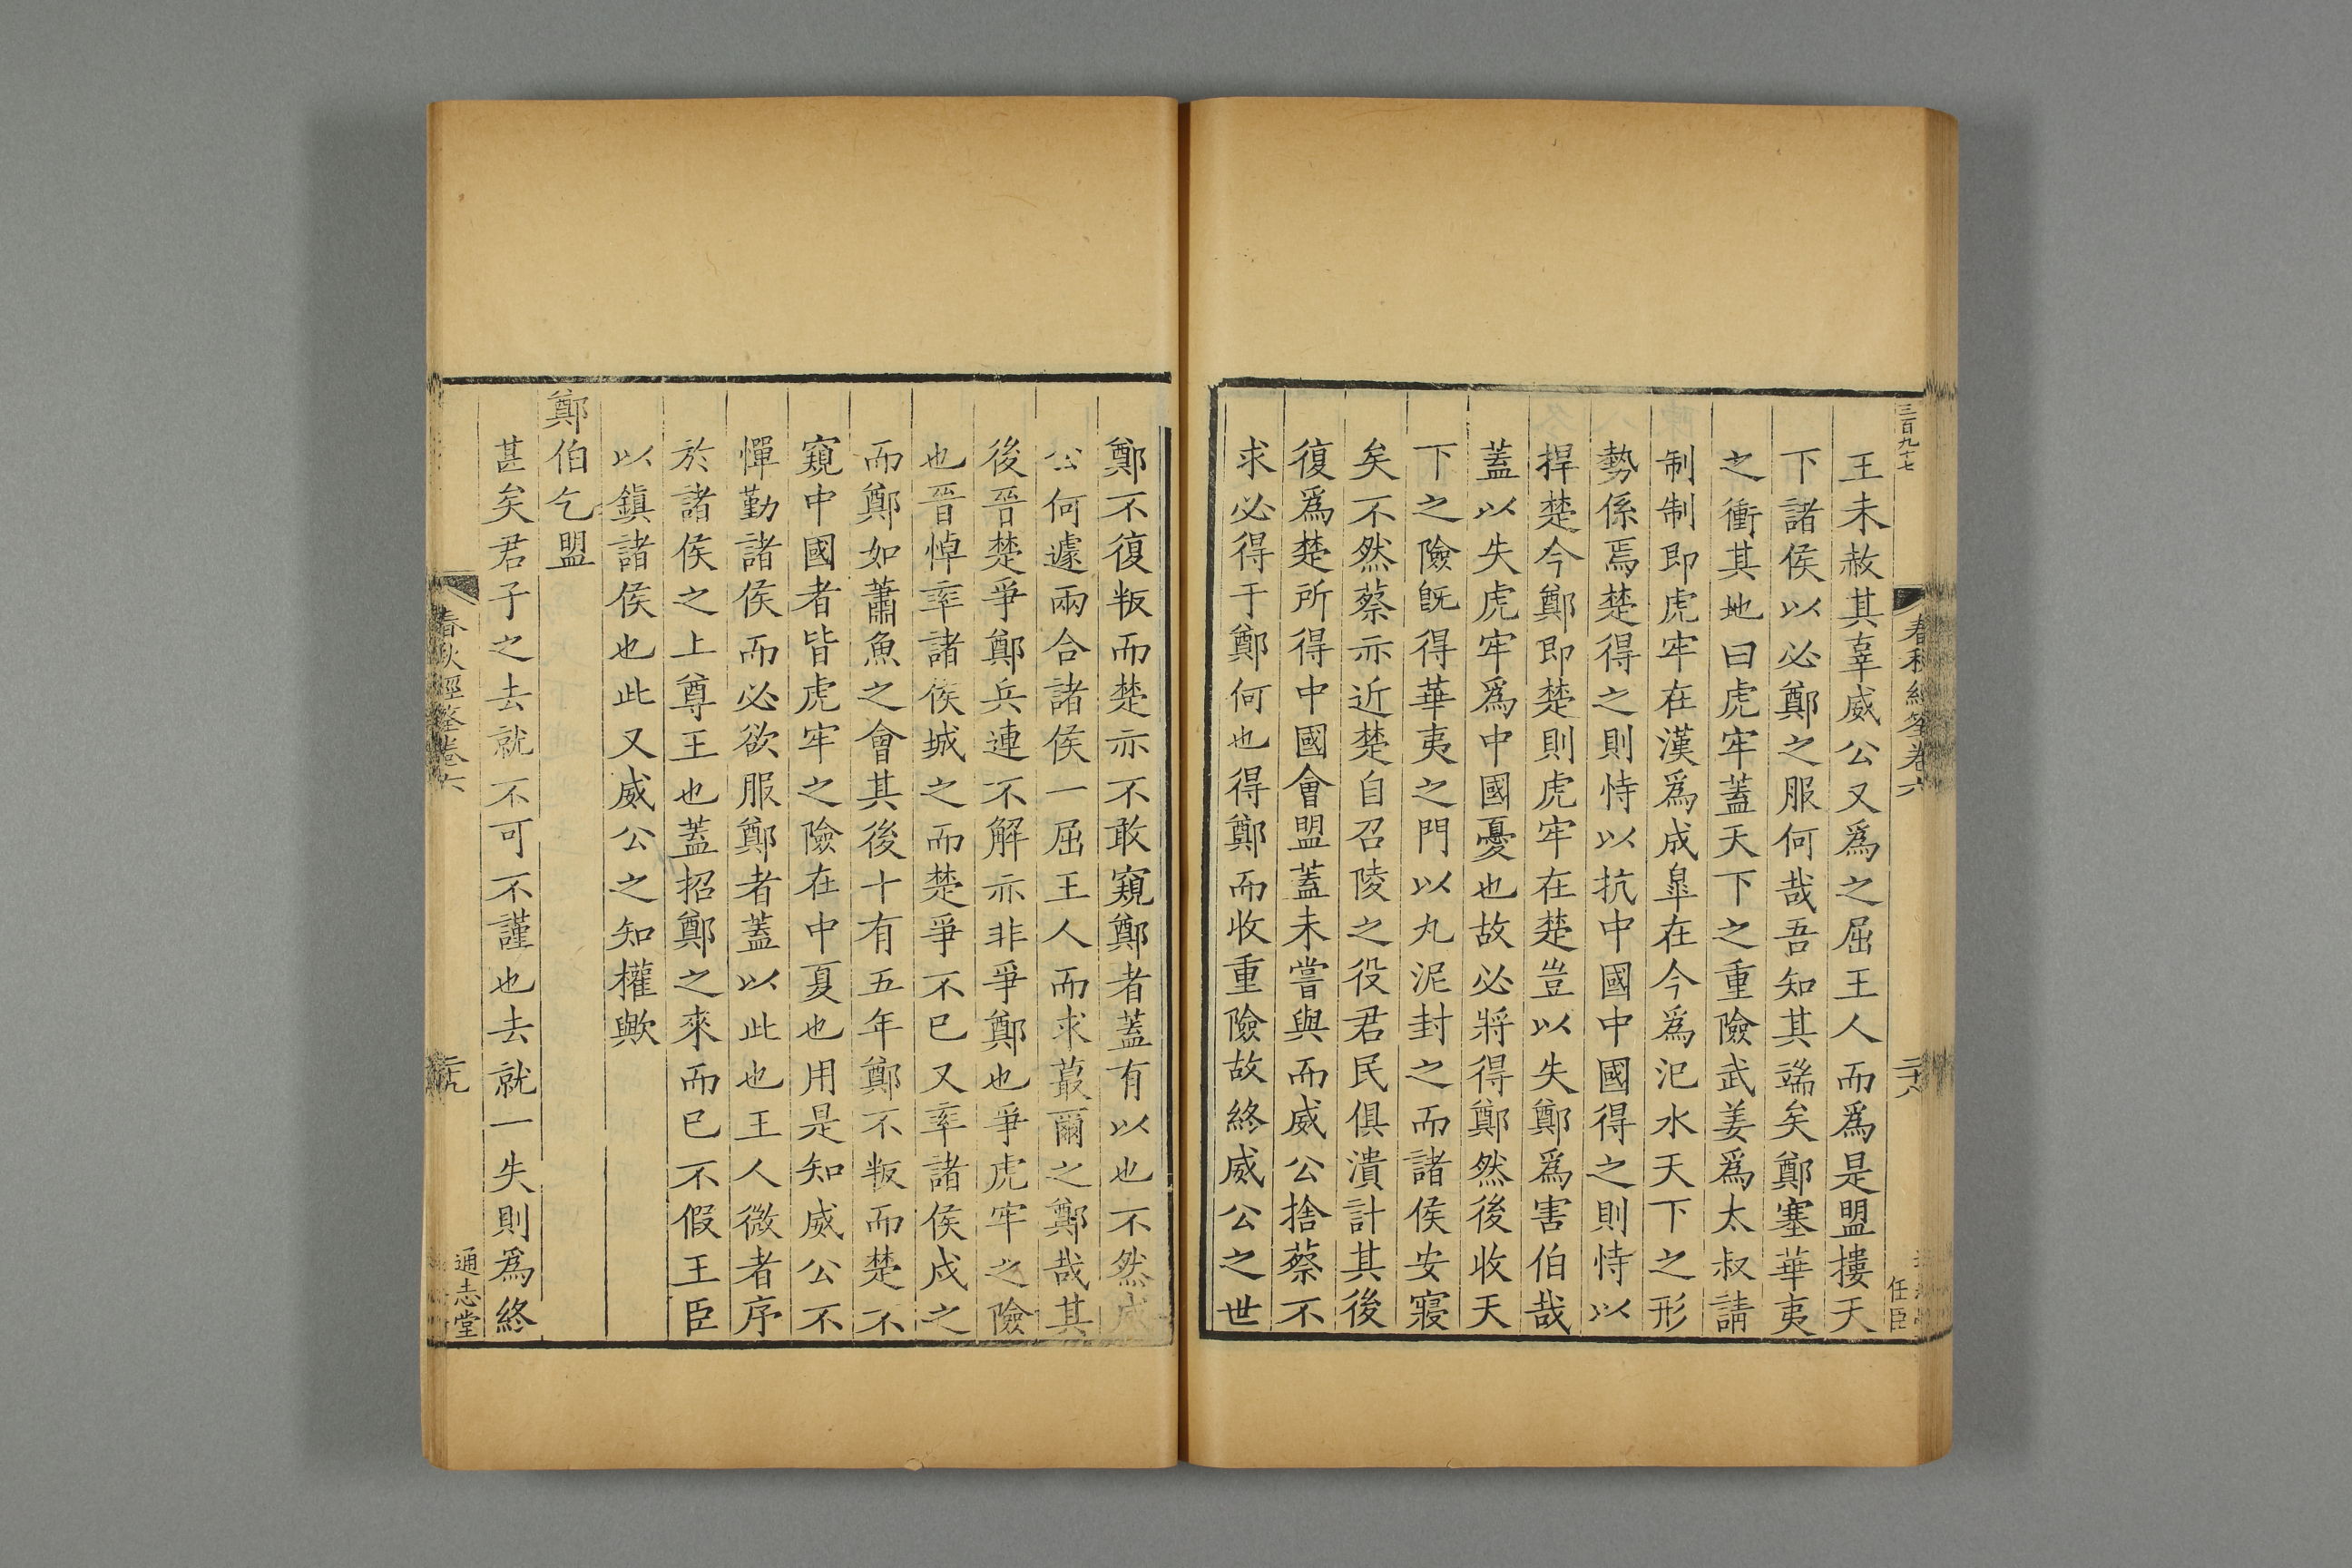 三百九十七
春秋經筌卷六
二十八
任臣
王未赦其辠威公又爲之屈王人而爲是盟摟天
下諸侯以必鄭之服何哉吾知其端矣鄭塞華夷
之衝其地曰虎牢蓋天下之重險武姜爲太叔請
制制即虎牢在漢爲成臯在今爲汜水天下之形
勢係焉楚得之則恃以抗中國中國得之則恃以
捍楚今鄭即楚則虎牢在楚豈以失鄭爲害伯哉
蓋以失虎牢爲中國憂也故必將得鄭然後收天
下之險旣得華夷之門以丸泥封之而諸侯安寢
矣不然蔡亦近楚自召陵之役君民俱潰計其後
復爲楚所得中國會盟蓋未嘗與而威公捨蔡不
求必得于鄭何也得鄭而收重險故終威公之世
鄭不復叛而楚亦不敢窺鄭者蓋有以也不然威
公何遽兩合諸侯一屈王人而求蕞爾之鄭哉其
後晉楚爭鄭兵連不解亦非爭鄭也爭虎牢之險
也晉悼率諸侯城之而楚爭不已又率諸侯戍之
而鄭如蕭魚之會其後十有五年鄭不叛而楚不
窺中國者皆虎牢之險在中夏也用是知威公不
憚勤諸侯而必欲服鄭者蓋以此也王人微者序
於諸侯之上尊王也蓋招鄭之來而已不假王臣
以鎭諸侯也此又威公之知權歟
鄭伯乞盟
甚矣君子之去就不可不謹也去就一失則爲終
春秋經筌卷六
二十九
通志堂